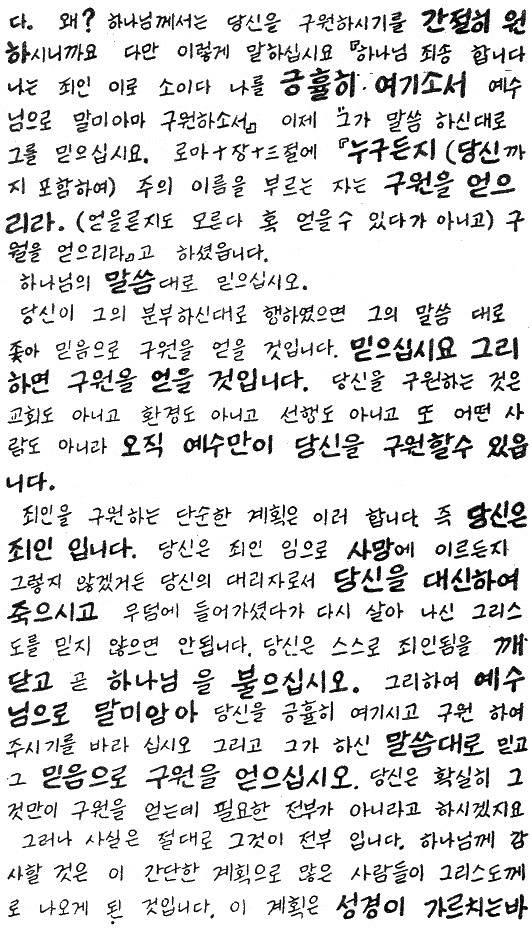 다. 왜? 하나님께서는 당신을 구원하시기를 간절히 원
하시니까요 다만 이렇게 말하십시요 『하나님 죄송 합니다
나는 죄인 이로 소이다 나를 긍휼히·여기소서 예수
님으로 말미아마 구원하소서』 이제 『그가 말씀 하신대로
그를 믿으십시요. 로마十장十三절에 『누구든지 (당신까
지 포함하여) 주의 이름을 부르는 자는 구원을 얻으
리라. (얻을른지도 모른다 혹 얻을수 있다가 아니고) 구
원을 얻으리라』고 하셨읍니다.
하나님의 말씀대로 믿으십시오.
당신이 그의 분부하신대로 행하였으면 그의 말씀 대로
좇아 믿음으로 구원을 얻을 것입니다. 믿으십시요 그리
하면 구원을 얻을 것입니다. 당신을 구원하는 것은
교회도 아니고 환경도 아니고 선행도 아니고 또 어떤 사
람도 아니라 오직 예수만이 당신을 구원할수 있읍
니다.
죄인을 구원하는 단순한 계획은 이러 합니다. 즉 당신은
죄인 입니다. 당신은 죄인 임으로 사망에 이르든지
그렇지 않겠거든 당신의 대리자로서 당신을 대신하여
죽으시고 무덤에 들어가셨다가 다시 살아 나신 그리스
도를 믿지 않으면 안됩니다. 당신은 스스로 죄인됨을 깨
닫고 곧 하나님 을 불으십시오. 그리하여 예수
님으로 말미암아 당신을 긍휼히 여기시고 구원 하여
주시기를 바라 십시오 그리고 그가 하신 말씀대로 믿고
그 믿음으로 구원을 얻으십시오. 당신은 확실히 그
것만이 구원을 얻는데 필요한 전부가 아니라고 하시겠지요
그러나 사실은 절대로 그것이 전부 입니다. 하나님께 감
사할 것은 이 간단한 계획으로 많은 사람들이 그리스도께
로 나오게 된 것입니다. 이 계획은 성경이 가르치는바